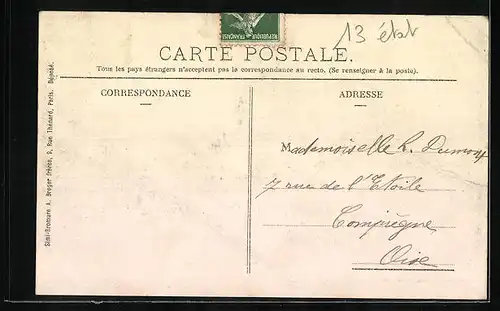 RÉPUBLIQUE FRANÇAISE
13 état
CARTE POSTALE.
Tous les pays étrangers n'acceptent pas la correspondance au recto. (Se renseigner à la poste).
CORRESPONDANCE
ADRESSE
Mademoiselle h. Dumont
7 rue de l'Etoile
Compiègne
Oise
Simi-Bromure A. Breger frères, 9, Rue Thénard, Paris. Déposé.